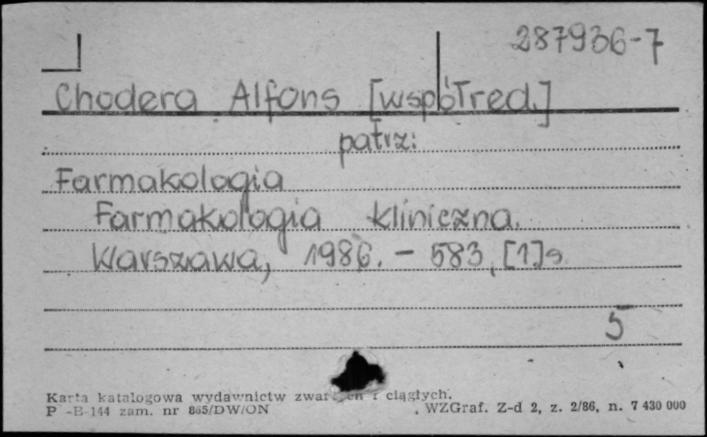 287936-7
Chodera Alfons [współred.]
patrz:
Farmakologia
Farmakologia kliniczna.
Warszawa, 1986. - 583, [1] s
5
Karta katalogowa wydawnictw i ciągłych.
P -B-144 zam. nr 865/DW/ON WZGraf. Z-d 2, z. 2/86, n. 7 430 000